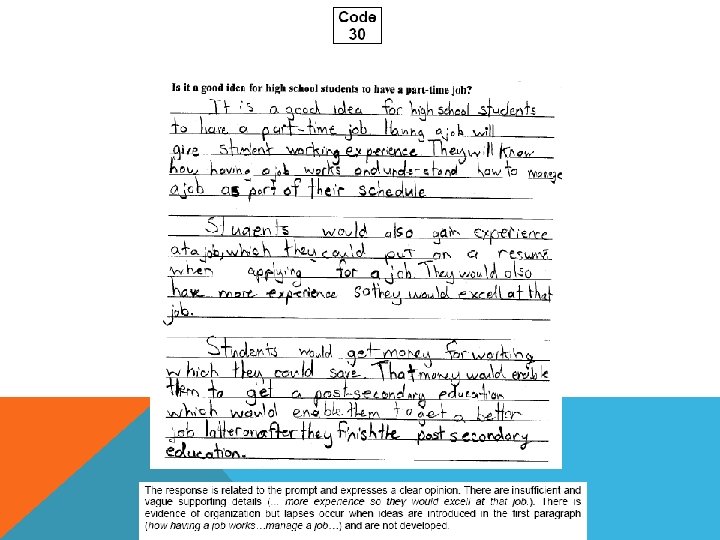 Code
30
Is it a good idea for high school students to have a part-time job?
It is a good idea for high school students
to have a part-time job. Having a job will
give student working experience. They will know
how having a job works and understand how to manage
a job as part of their schedule
Students would also gain experience
at a job, which they could put on a resume
when applying for a job. They would also
have more experience so they would excell at that
job.
Students would get money for working
which they could save. That money would enable
them to get a post-secondary education
which would enable them to get a better
job latter on after they finish the post secondary
education.
The response is related to the prompt and expresses a clear opinion. There are insufficient and
vague supporting details (... more experience so they would excell at that job.). There is
evidence of organization but lapses occur when ideas are introduced in the first paragraph
(how having a job works…manage a job…) and are not developed.